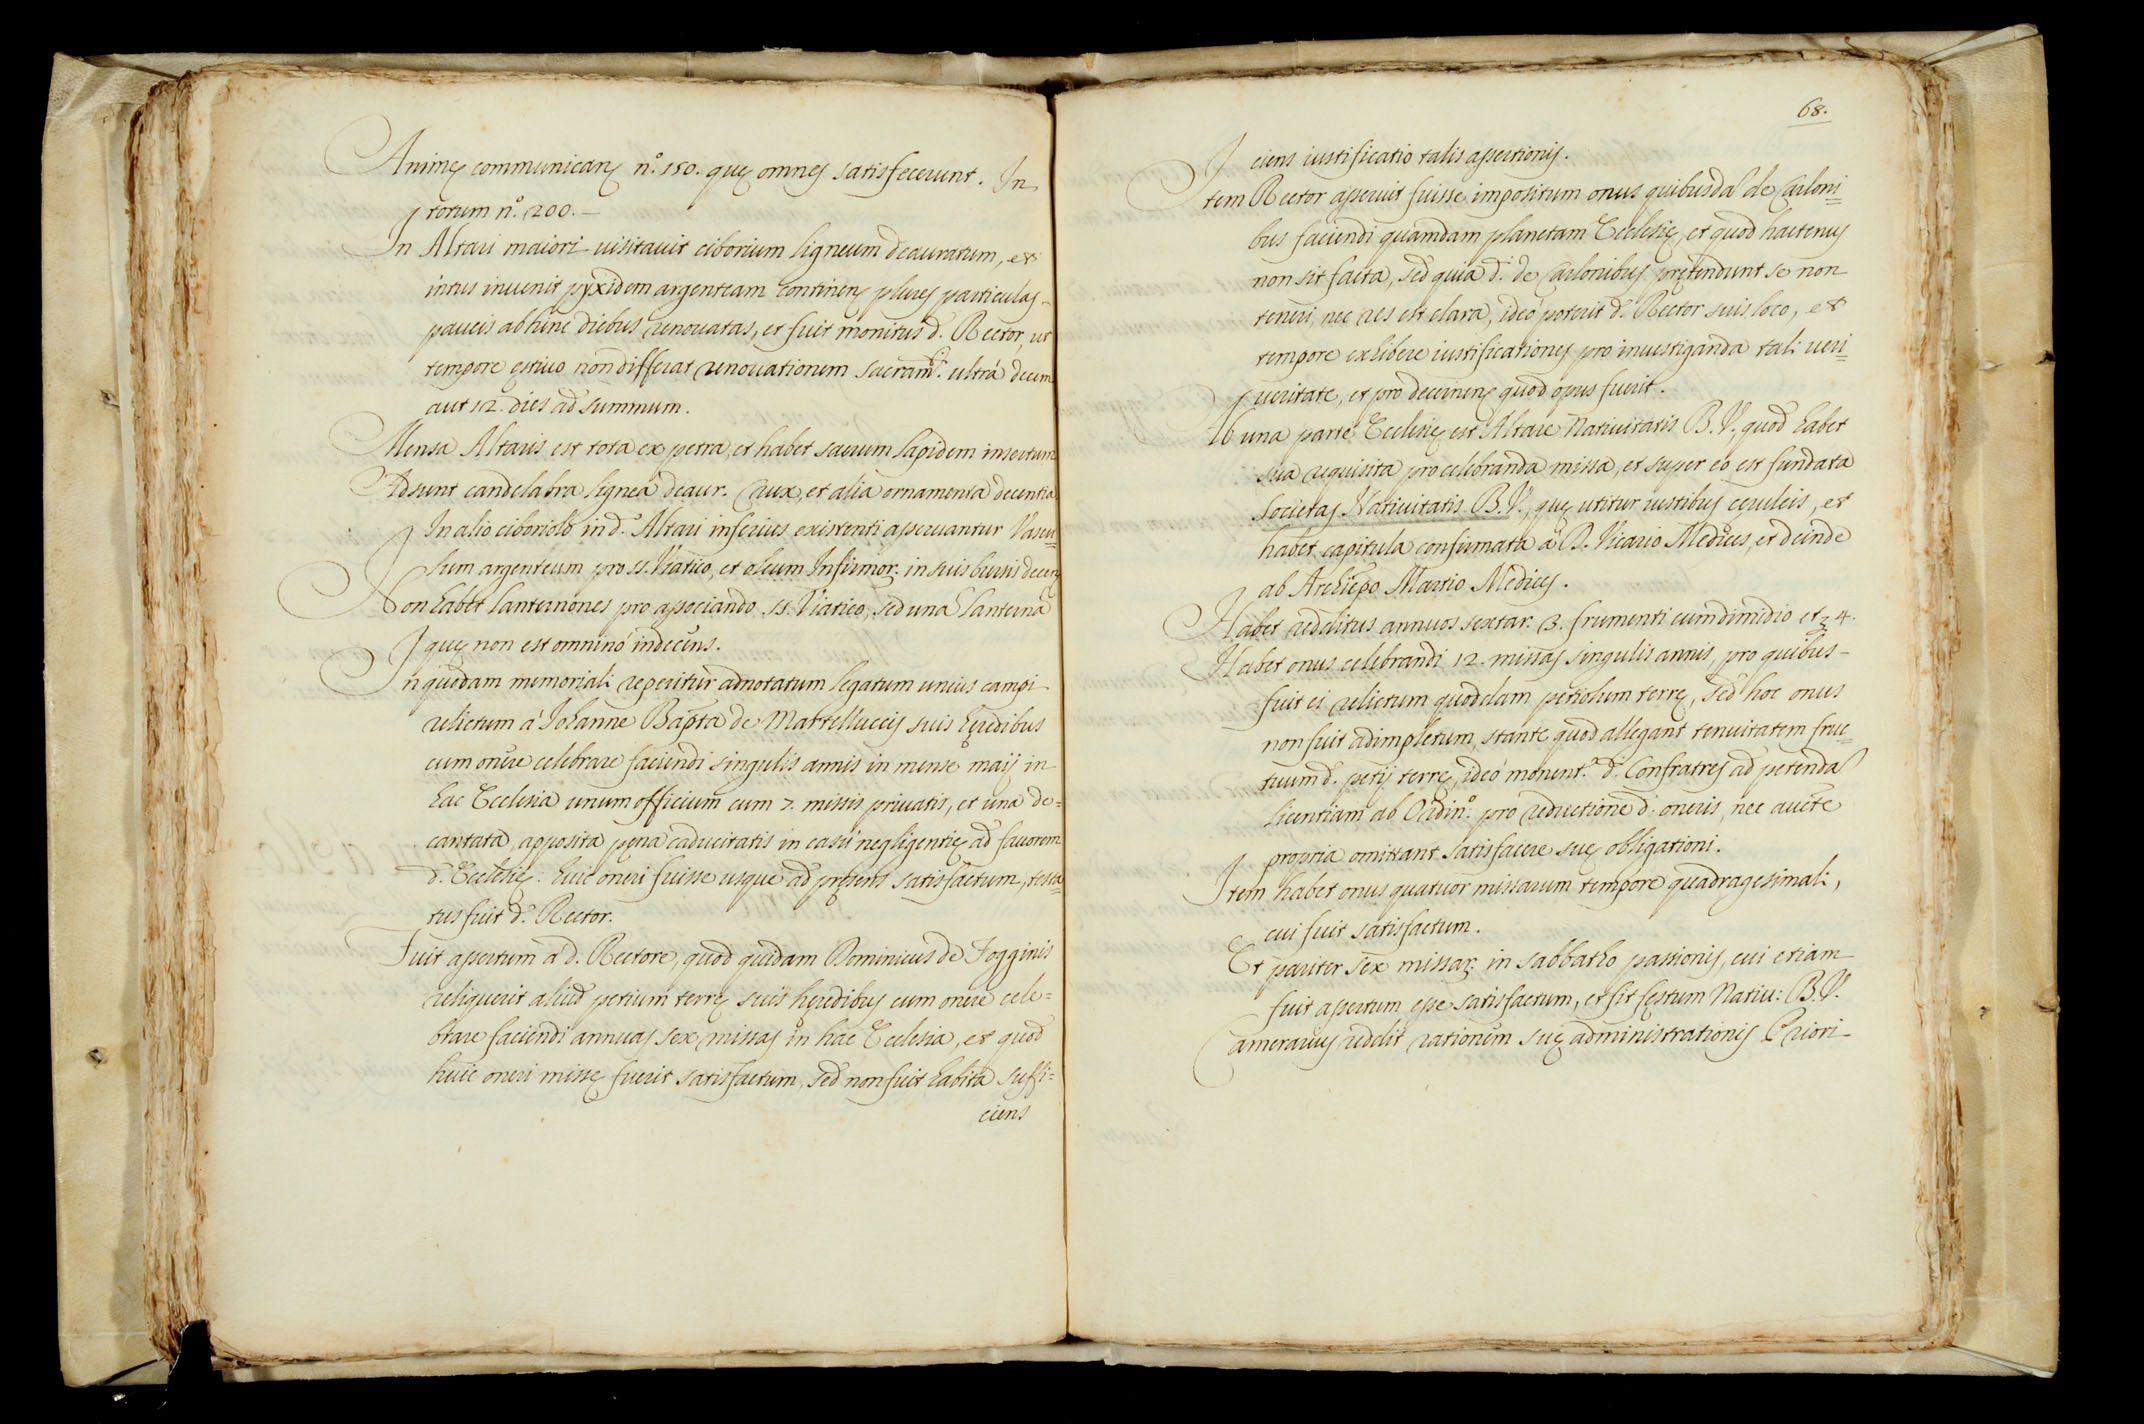 Animę communicanę nº. 150. quę omnes satisfecerunt. In
totum nº. 200. —
In Altari maiori visitavit ciborium ligneum deauratum, et
intus invenit pyxidem argenteam continenę plures particulas
paucis abhinc diebus renovatas, et fuit monitus d. Rector, ut
tempore ęstivo non differat renovationem sacramti. ultrà decem
aut 12. dies ad summum.
Mensa Altaris est tota ex petra, et habet sacrum lapidem insertum
Adsunt candelabra lignea deaur. Crux, et alia ornamenta decentia
In alio ciboriolo in d. Altari inferius existenti asservantur Vascu=
lum argenteum pro SS. Viatico, et oleum Infirmor. in suis bursis decenę
Non habet lanternones pro associando SS. Viatico, sed unã lanternã
quę non est omninò indecens.
In quodam memoriali reperitur adnotatum legatum unius campi
relictum à Iohanne Bapta de Martelluccijs suis hęredibus
cum onere celebrare faciendi singulis annis in mense maij in
hac Ecclesia unum officium cum 7. missis privatis, et una de=
cantata, apposita pęna caducitatis in casu negligentię ad favorem
d. Ecclesię: huic oneri fuisse usque ad pręsens satisfactum, testa=
tus fuit d. Rector.
Fuit assertum à d. Rectore, quod quidam Dominicus de Fogginis
reliquerit aliud petium terrę suis hęredibus cum onere cele=
brare faciendi annuas sex missas in hac Ecclesia, et quod
huic oneri missę fuerit satisfactum, sed non fuit habita suffi=
ciens
68.
ciens iustificatio talis assertionis.
Item Rector asseruit fuisse impositum onus quibusdã de Carloni=
bus faciendi quamdam planetam Ecclesię, et quod hactenus
non sit facta, sed quia d. de Carlonibus prętendunt se non
teneri, nec res est clara, ideò poterit d. Rector suis loco, et
tempore exhibere iustificationes pro investiganda tali veri=
veritate, et pro decernenę quod opus fuerit.
Ab una parte Ecclesię est Altare Nativitatis B. V., quod habet
sua requisita pro celebranda missa, et super eo est fundata
Societas Nativitatis B. V., quę utitur vestibus ceruleis, et
habet capitula confirmata à R. Vicario Medices, et deinde
ab Archiepo Martio Medices.
Habet redditus annuos sextar. 3. frumenti cum dimidio et ʒ 4.
Habet onus celebrandi 12. missas singulis annis, pro quibus
fuit ei relictum quoddam petiolum terrę, sed hoc onus
non fuit adimpletum, stante quod allegant tenuitatem fruc=
tuum d. petij terrę, ideò monent. d. Confratres ad petendã
licentiam ab Ordino. pro reductione d. oneris, nec aucte
propria omittant satisfacere suę obligationi.
Item habet onus quatuor missarum tempore quadragesimali,
cui fuit satisfactum.
Et pariter sex missar. in sabbatho passionis, cui etiam
fuit assertum esse satisfactum, et fit festum Nativ: B. V.
Camerarius reddit rationem suę administrationis Priori